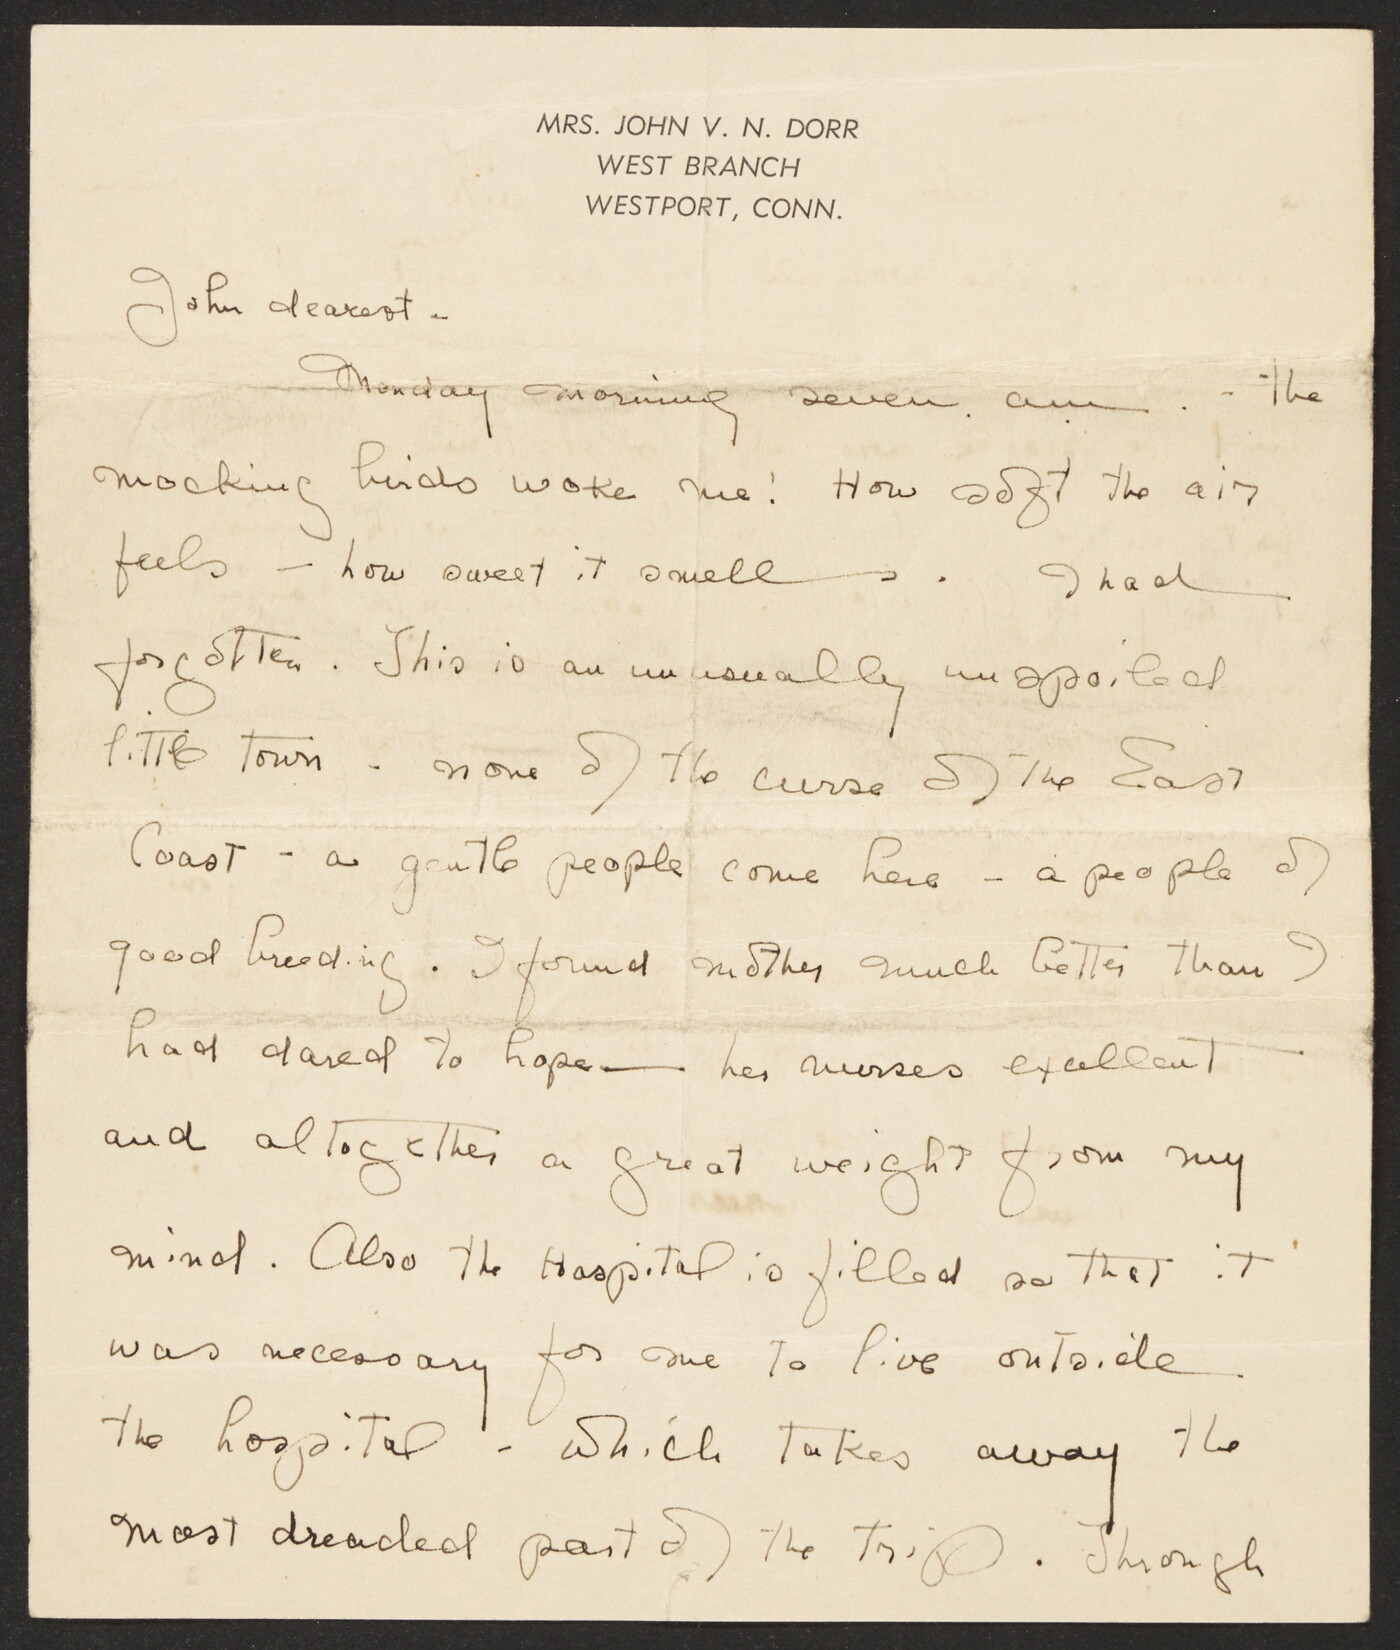 MRS. JOHN V. N. DORR
WEST BRANCH
WESTPORT, CONN.
John dearest -
Monday morning seven. am. - the
mocking birds woke me! How soft the air
feels - how sweet it smells. I had
forgotten. This is an unusually unspoiled
little town - none of the curse of the East
Coast - a gentle people come here - a people of
good breeding. I found mother much better than I
had dared to hope — her nurses excellent
and altogether a great weight from my
mind. Also the Hospital is filled so that it
was necessary for me to live outside
the hospital - which takes away the
most dreaded part of the trip. Through